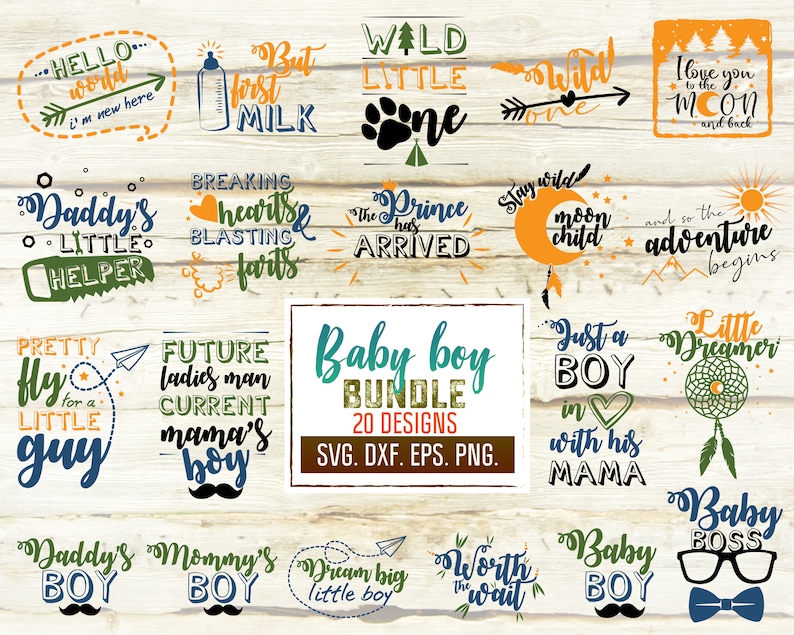 HELLO
world
i'm new here
But
first
MILK
WILD
LITTLE
One
Wild
one
I love you
to the
MOON
and back
Daddy's
LITTLE
HELPER
BREAKING
hearts &
BLASTING
farts
The Prince
has
ARRIVED
Stay wild
moon
child
and so the
adventure
begins
PRETTY
fly
for a
LITTLE
guy
FUTURE
ladies man
CURRENT
mama's
boy
Baby boy
BUNDLE
20 DESIGNS
SVG. DXF. EPS. PNG.
Just a
BOY
in
with his
MAMA
Little
Dreamer
Daddy's
BOY
Mommy's
BOY
Dream big
little boy
Worth
the wait
Baby
BOY
Baby
BOSS